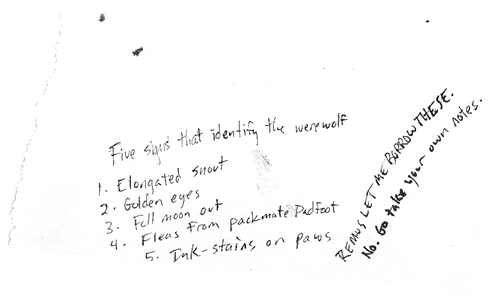 Five signs that identify the werewolf
1. Elongated snout
2. Golden eyes
3. Full moon out
4. Fleas from packmate Padfoot
5. Ink-stains on paws
REMUS LET ME BORROW THESE.
No. Go take your own notes.